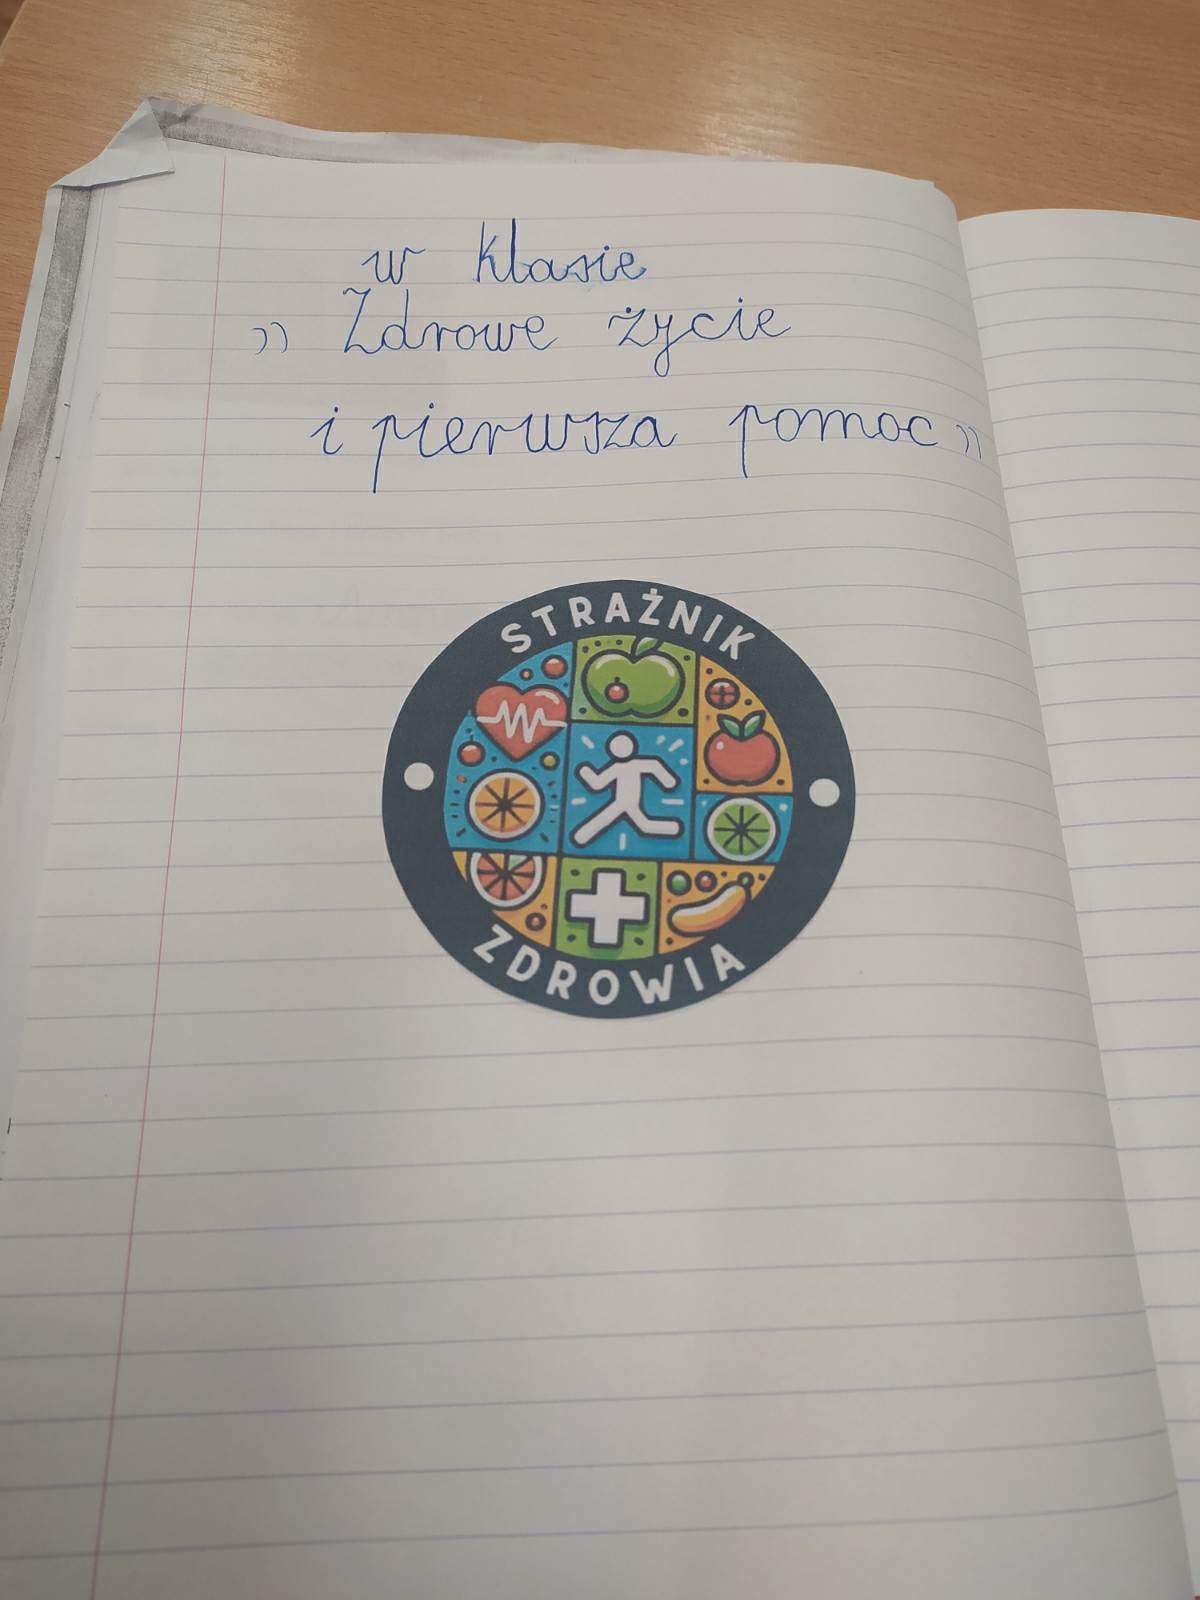 w klasie
,, Zdrowe życie
i pierwsza pomoc ”
STRAŻNIK
ZDROWIA